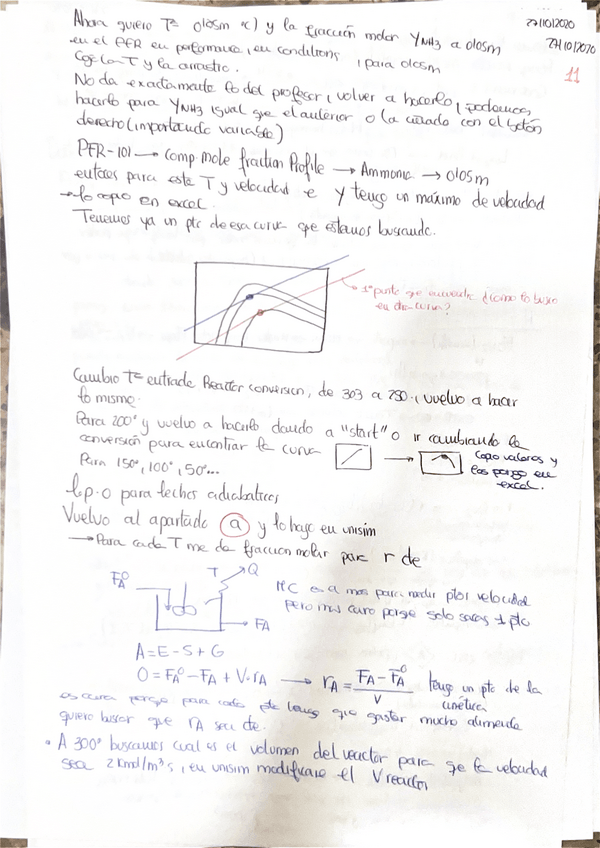 27/10/2020
27/10/2020
11
Ahora quiero Tª 0'05m ºC) y la fracción molar YNH3 a 0'05m
en el PFR en performance, en conditions, para 0'05m
Cojo la T y la arrastro.
No da exactamente lo del profesor, volver a hacerlo, podemos
hacerlo para YNH3 igual que el anterior o la cuado con el botón
derecho (importando variable)
PFR-101 → Comp. mole fraction Profile → Ammonia → 0'05m
entoces para esta T y velocidad e y tengo un máximo de velocidad
→ lo copio en excel.
Tenemos ya un pto de esa curva que estamos buscando.
→ 1º punto que encuentro ¿cómo lo busco
en otra curva?
Cambio Tª entrada Reactor conversion, de 303 a 250, vuelvo a hacer
lo mismo.
Para 200º y vuelvo a hacerlo dando a "start" o ir cambiando la
conversión para encontrar la curva
→
Copio valores y
los pongo en
excel.
Para 150º, 100º, 50º...
l.p.o para lechos adiabáticos
Vuelvo al apartado a y lo hago en unisim
→ Para cada T me da fraccion molar para r de
FA⁰
T
Q
FA
MC es a mas para medir ptos velocidad
pero mas caro porque solo sacas 1 pto
A = E - S + G
0 = FA⁰ - FA + V·rA → rA = (FA - FA⁰) / V
tengo un pto de la
cinética
es cara porque para cada pto tengo que gastar mucho alimento
quiero buscar que rA sea de.
• A 300º buscamos cual es el volumen del reactor para que la velocidad
sea 2 kmol/m³s, en unisim modificare el V reactor